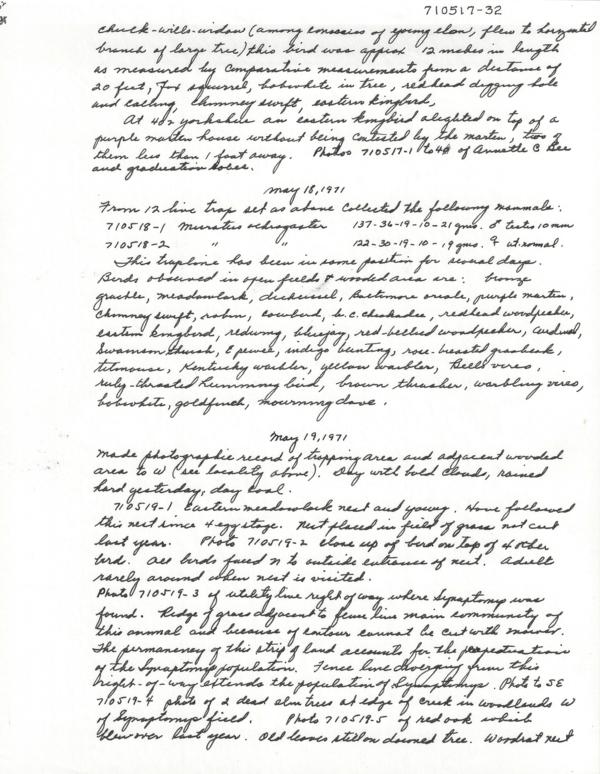 710517-32
chuck-wills-widow (among concossies of young elm, flew to horizontal
branch of large tree) this bird was approx 12 inches in length
as measured by comparative measurements from a distance of
20 feet, fox squirrel, bobwhite in tree, redhead digging hole
and calling, chimney swift, eastern kingbird,
At 402 Yorkshire an eastern kingbird alighted on top of a
purple martin house without being contested by the martin, two of
them less than 1 foot away. Photos 710517-1 to 40 of Annette C Bee
and graduation robes.
May 18, 1971
From 12 live trap set as above collected the following mammals:
710518-1 Microtus ochrogaster 137-36-19-10-21 gms. ♂ testis 10mm
710518-2 " " 122-30-19-10-19 gms. ♀ ut. normal.
This trapline has been in same position for several days.
Birds observed in open fields & wooded area are: bronze
grackle, meadowlark, dickcissel, Baltimore oriole, purple martin,
chimney swift, robin, cowbird, b.c. chickadee, redhead woodpecker,
eastern kingbird, redwing, bluejay, red-bellied woodpecker, cardinal,
Swainson thrush, E pewee, indigo bunting, rose-breasted grosbeak,
titmouse, Kentucky warbler, yellow warbler, Bells vireo,
ruby-throated hummingbird, brown thrasher, warbling vireo,
bobwhite, goldfinch, mourning dove.
May 19, 1971
Made photographic record of trapping area and adjacent wooded
area to W (see locality above). Day with bold clouds, rained
hard yesterday, day cool.
710519-1 Eastern meadowlark nest and young. Have followed
this nest since 4 egg stage. Nest placed in field of grass not cut
last year. Photo 710519-2 close up of bird on top of 4 other
bird. All birds faced N to outside entrance of nest. Adult
rarely around when nest is visited.
Photo 710519-3 of utility line right of way where Synaptomys was
found. Ridge of grass adjacent to fence line main community of
this animal and because of contour cannot be cut with mower.
The permanency of this strip of land accounts for the perpetuation
of the Synaptomys population. Fence line diverging from this
right-of-way extends the population of Synaptomys. Photo to SE
710519-4 photo of 2 dead elm trees at edge of creek in woodlands W
of Synaptomys field. Photo 710519-5 of red oak which
blew over last year. Old leaves still on downed tree. Woodrat nest